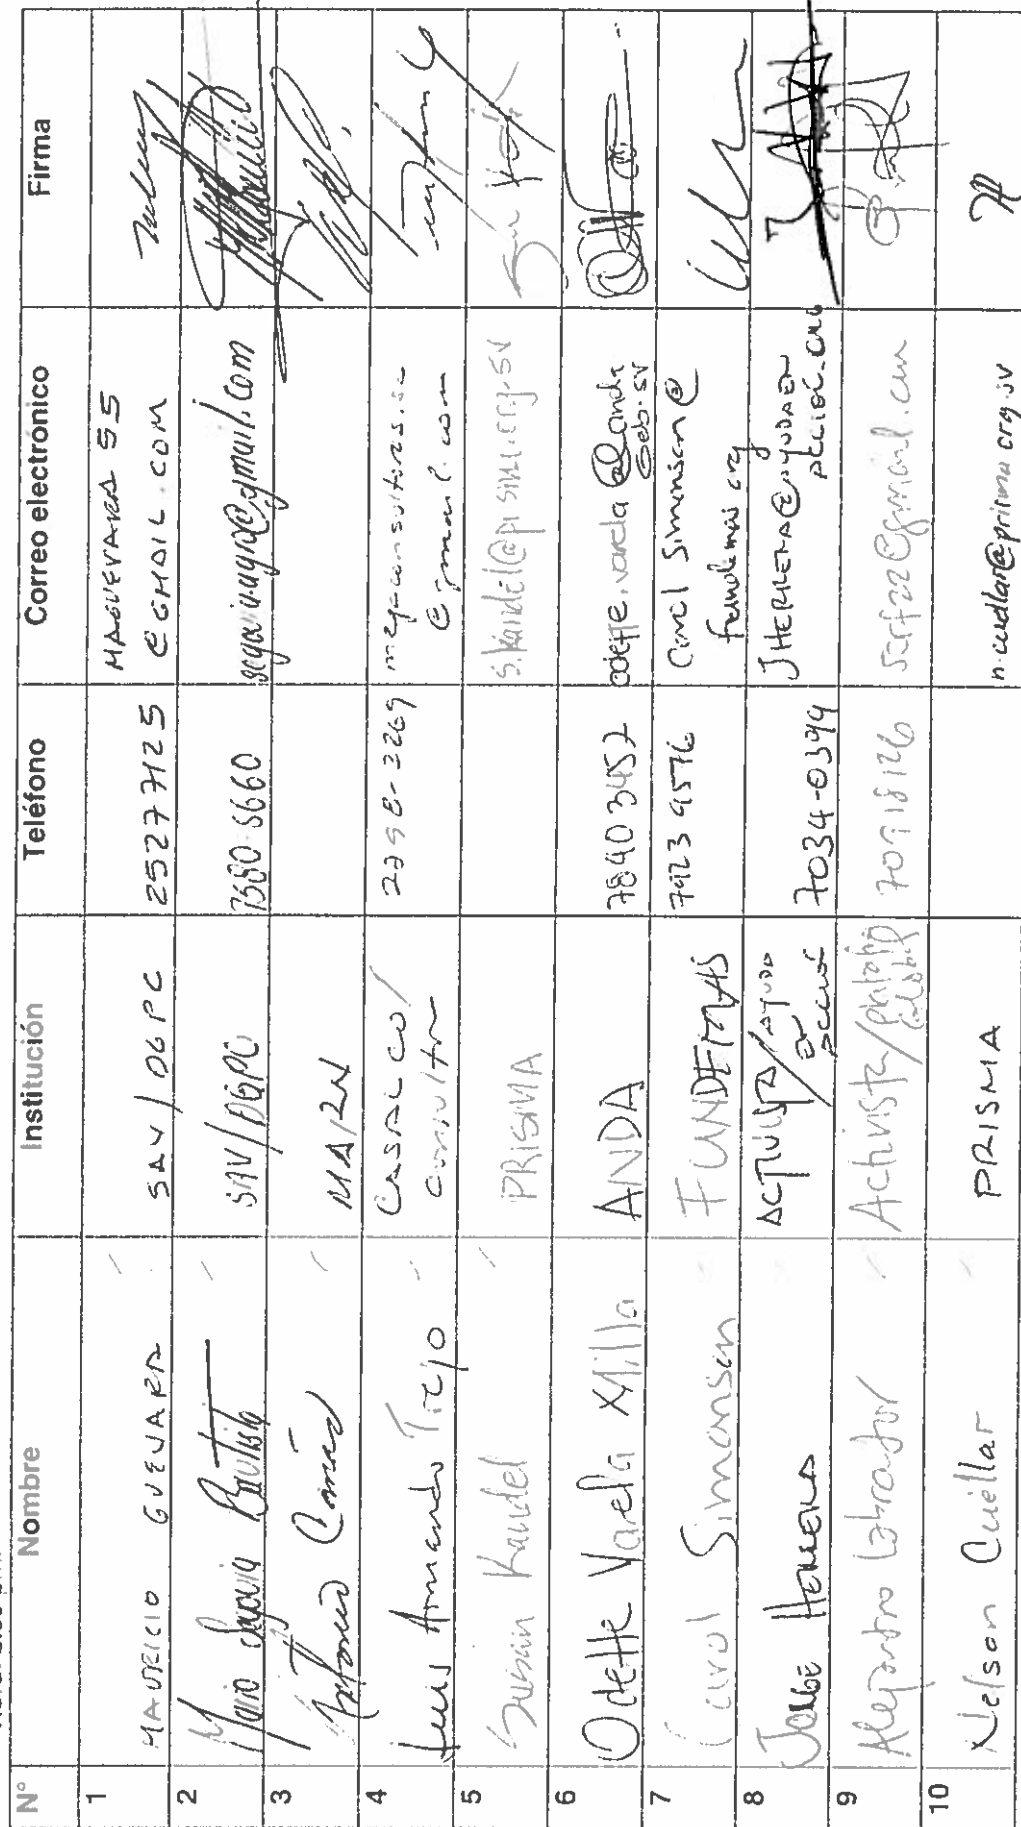 N° Nombre Institución Teléfono Correo electrónico Firma
1 MAURICIO GUEVARA SAV/DGPC 25277125 MAGUEVARA 55
@GMAIL.COM
2 Mario Segovia Bautista SAV/DGPC @gmail.com
3 Antonio Cañas MARN
4 Luis Armando Trejo CASALCO/
Consultor 2298-3269 megaconsultores.sa
@gmail.com
5 Susan Kandel PRISMA s.kandel@prisma.org.sv
6 Odette Varela Milla ANDA 78403452 odette.varela@anda
gob.sv
7 Carol Simanson FUNDEMAS 7923 9576 Carol Simanson@
fundemas org
8 JORGE HERRERA ACTIVISTA/AYUDA
EN
ACCIÓN 7034-0399 JHERRERA@AYUDAEN
ACCION.ORG
9 Alejandro Labrador Activista/ 70918126 @gmail.com
10 Nelson Cuéllar PRISMA n.cuellar@prisma org.sv